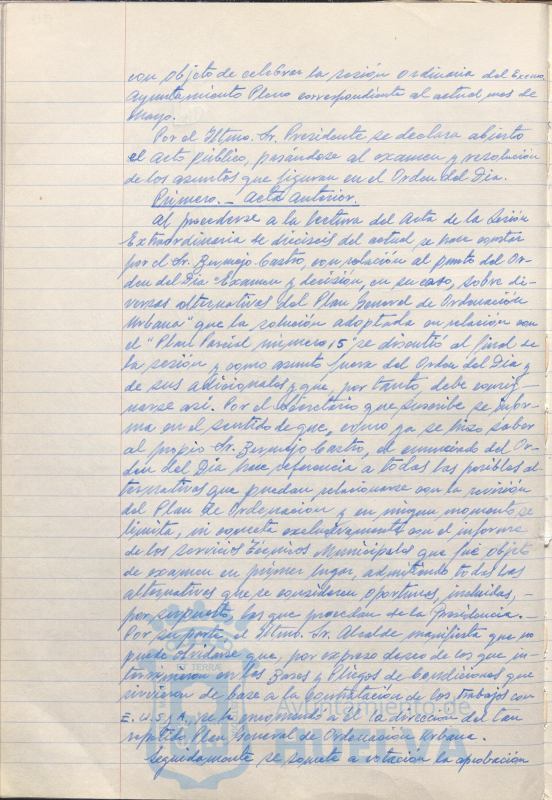 con objeto de celebrar la sesión ordinaria del Excmo.
Ayuntamiento Pleno correspondiente al actual mes de
Mayo.
Por el Iltmo. Sr. Presidente se declara abierto
el acto público, pasándose al examen y resolución
de los asuntos que figuran en el Orden del Día.
Primero.- Acta anterior.
Al procederse a la lectura del Acta de la Sesión
Extraordinaria de dieciseis del actual, se hace constar
por el Sr. Bermejo Castro, con relación al punto del Or-
den del Día "Examen y decisión, en su caso, sobre di-
versas alternativas del Plan General de Ordenación
Urbana" que la solución adoptada en relación con
el "Plan Parcial número 15" se discutió al final de
la sesión y como asunto fuera del Orden del Día y
de sus adicionales y que, por tanto, debe consig-
narse así. Por el Secretario que suscribe se infor-
ma en el sentido de que, como ya se hizo saber
al propio Sr. Bermejo Castro, el enunciado del Or-
den del Día hace referencia a todas las posibles al-
ternativas que puedan relacionarse con la revisión
del Plan de Ordenación y en ningun momento se
limita, ni conecta exclusivamente con el informe
de los Servicios Técnicos Municipales que fué objeto
de examen en primer lugar, admitiendo todas las
alternativas que se consideren oportunas, incluidas, -
por supuesto, las que procedan de la Presidencia. -
Por su parte, el Iltmo. Sr. Alcalde manifiesta que no
puede olvidarse que, por expreso deseo de los que in-
tervinieron en las Bases y Pliegos de Condiciones que
sirvieron de base a la contratación de los trabajos con
E.U.S.A., se le encomendó a El la dirección del tan
repetido Plan General de Ordenación Urbana.
Seguidamente se somete a votación la aprobación
Ayuntamiento de
HUELVA